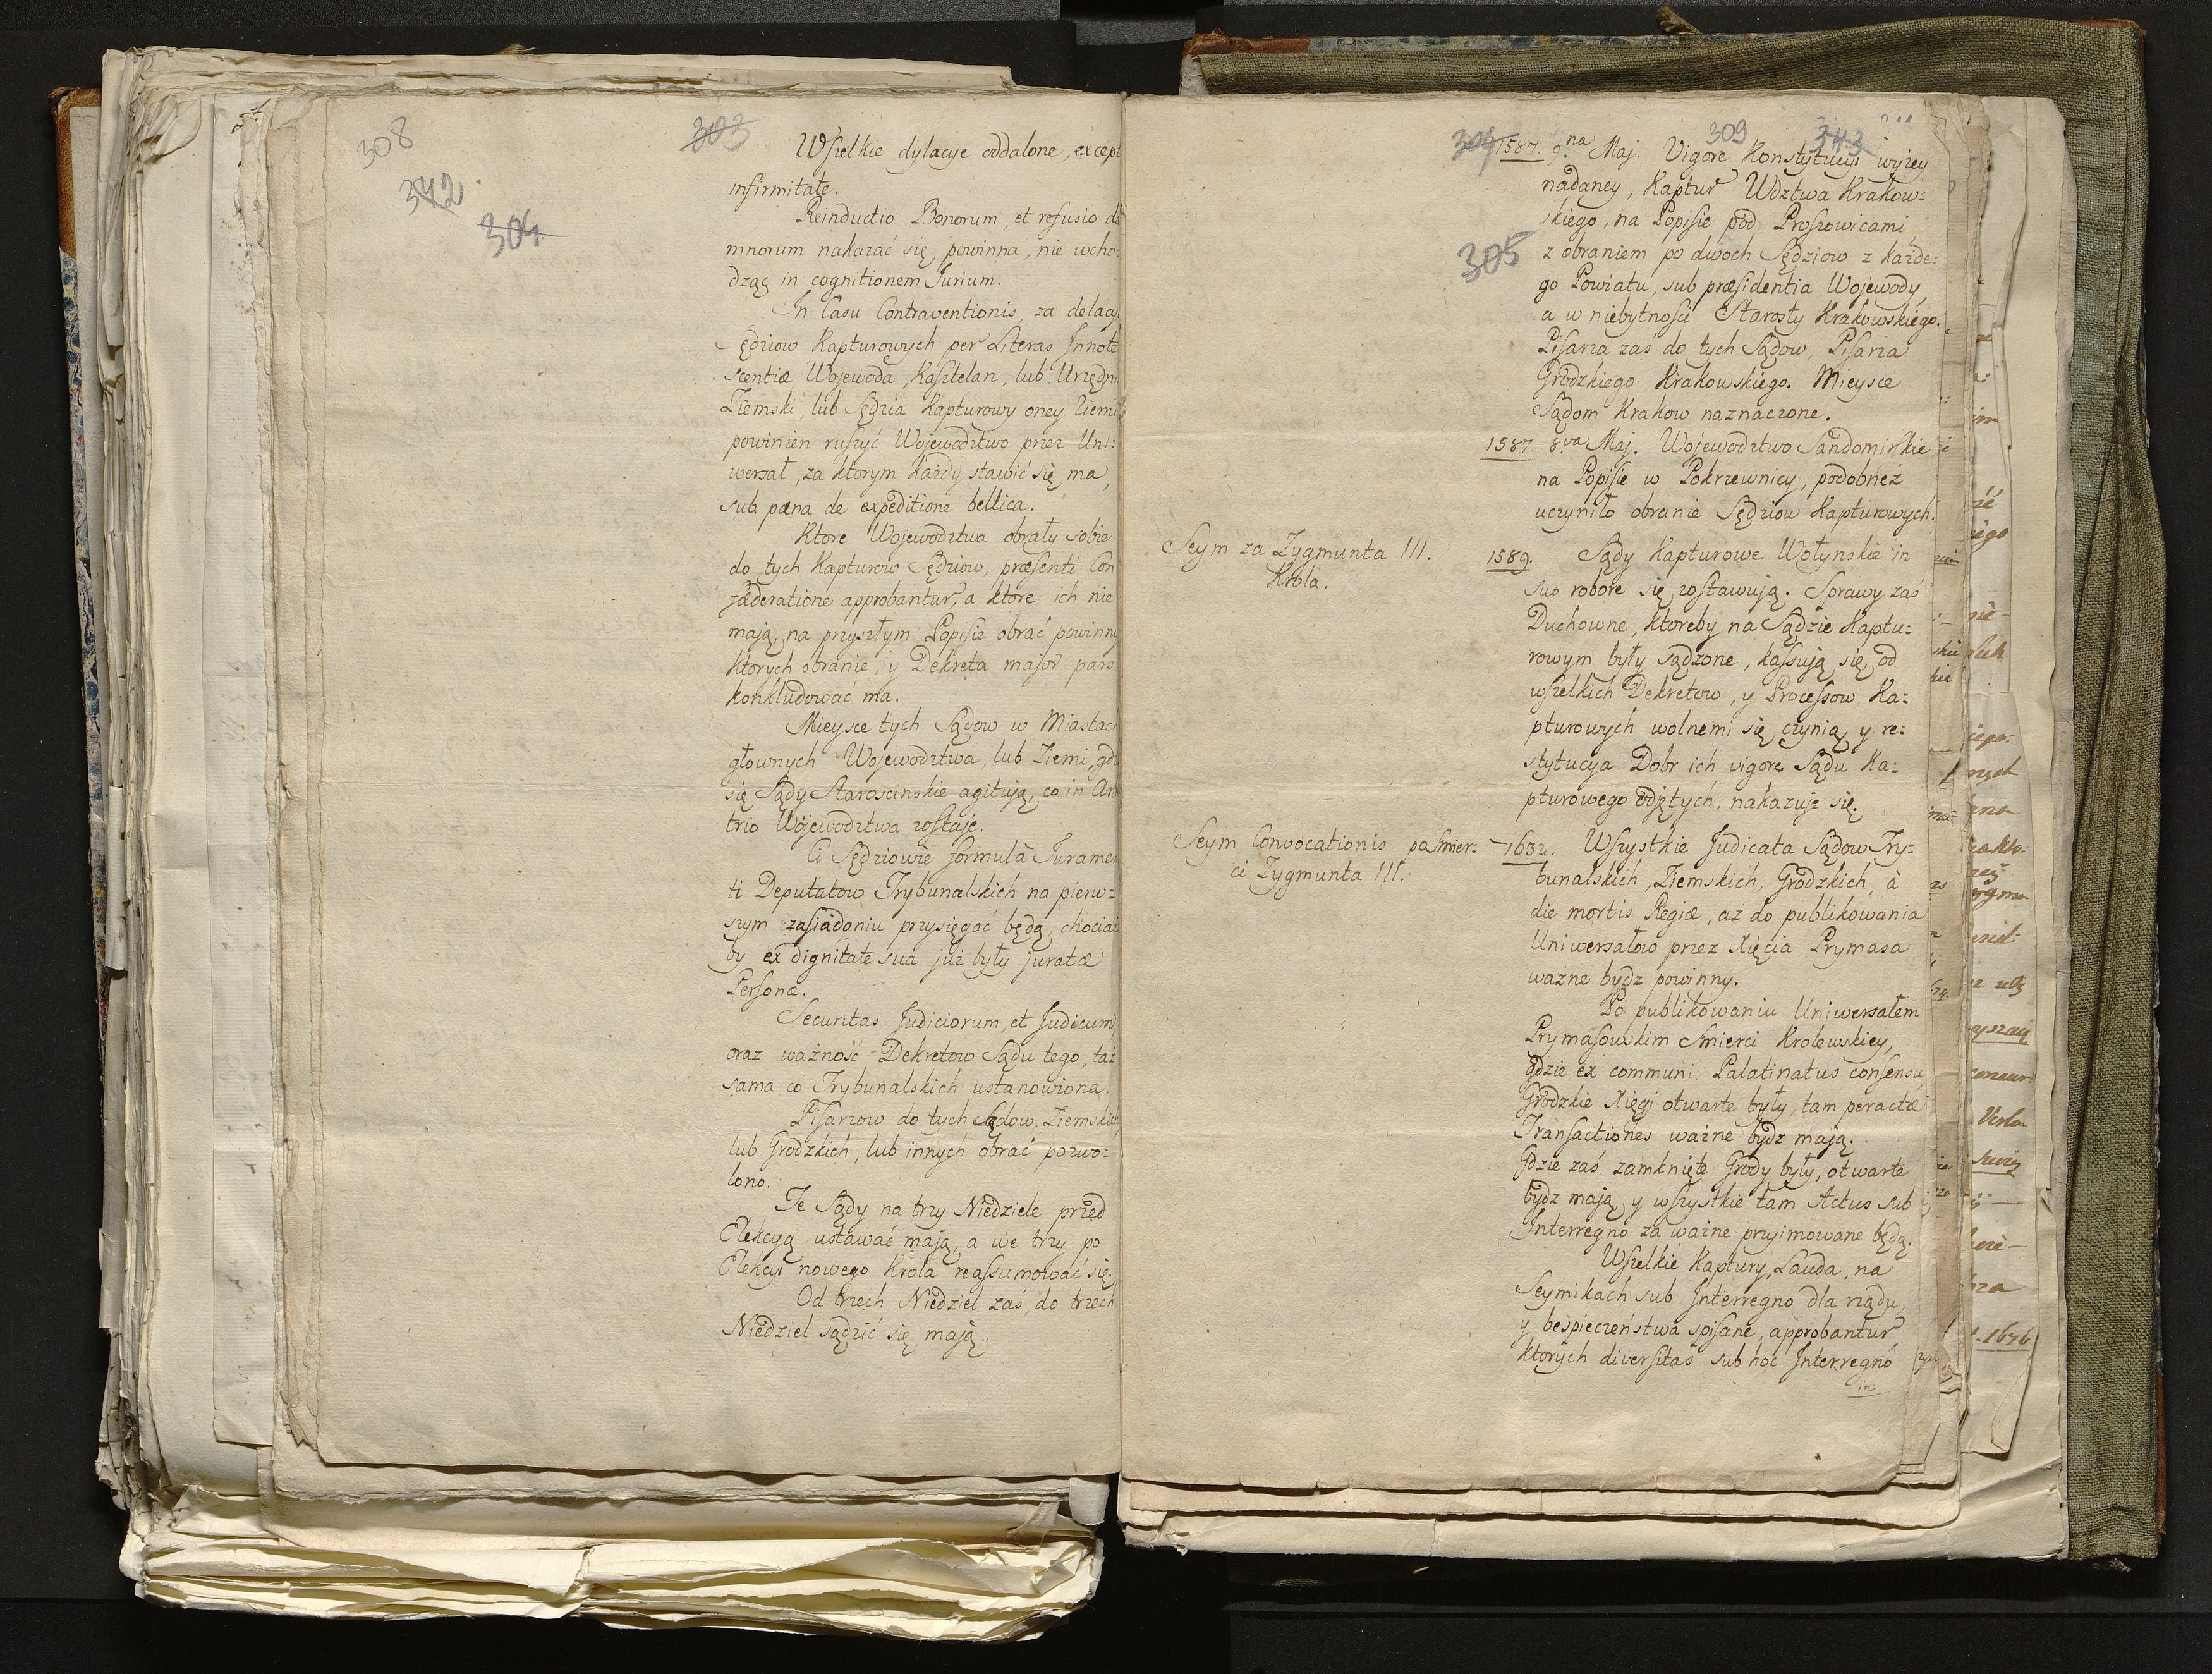 308
303
342
304
Wszelkie dylacye oddalone, except
infirmitate.
Reinductio Bonorum, et refusio da
mnorum nakazać się powinna, nie wcho=
dząc in cognitionem Jurium.
In Casu Contraventionis, za delacyą
Sędziow Kapturowych per Literas Innote
scentiæ Woiewoda, Kasztelan, lub Urzędni
Ziemski, lub Sędzia Kapturowy oney Ziemi
powinien ruszyć Woiewodztwo przez Uni=
wersał, za ktorym każdy stawić się ma,
sub pæna de expeditione bellica.
Ktore Woiewodztwa obrały sobie
do tych Kapturow Sędziow, præsenti Con
fæderatione approbantur, a które ich nie
mają, na przyszłym Popisie obrać powinny
ktorych obranie, y Dekreta major pars
konkludować ma.
Mieysce tych Sądow w Miastach
głownych Woiewodztwa, lub Ziemi, gdz
się Sądy Staroscinskie agitują, co in Arbi
trio Woiewodztwa zostaje.
Ci Sędziowie formulâ Juramen
ti Deputatow Trybunalskich na pierw=
szym zasiadaniu przysięgać będą, chociaż
by ex dignitate sua już były juratæ
Personæ.
Securitas Judiciorum, et Judicum
oraz ważność Dekretow Sądu tego, taż
sama co Trybunalskich ustanowiona.
Pisarzow do tych Sądow, Ziemskich
lub Grodzkich, lub innych obrać pozwo=
lono.
Te Sądy na trzy Niedziele przed
Elekcyą ustawać mają, a we trzy po
Elekcyi nowego Krola reassumować się.
Od trzech Niedziel zaś do trzech
Niedziel sądzić się mają.
304
309
343
305
1587. 9.na Maj. Vigore Konstytucyi wyżey
nadaney, Kaptur Wdztwa Krakow=
skiego, na Popisie pod Proszowicami
z obraniem po dwoch Sędziow z każde=
go Powiatu, sub præsidentia Woiewody,
a w niebytności Starosty Krakowskiego.
Pisarza zaś do tych Sądow, Pisarza
Grodzkiego Krakowskiego. Mieysce
Sądom Krakow naznaczone.
1587. 8.va Maj. Woiewodztwo Sandomirskie
na Popisie w Pokrzewnicy, podobnież
uczyniło obranie Sędziow Kapturowych.
Seym za Zygmunta III.
Krola.
1589. Sądy Kapturowe Wołynskie in
suo robore się zostawują. Sprawy zaś
Duchowne, ktoreby na Sądzie Kaptu=
rowym były sądzone, kassują się, od
wszelkich Dekretow, y Processow Ka=
pturowych wolnemi się czynią, y re=
stytucya Dobr ich vigore Sądu Ka=
pturowego odjętych, nakazuje się.
Seym Convocationis po Smier=
ci Zygmunta III.
1632. Wszystkie Judicata Sądow Try=
bunalskich, Ziemskich, Grodzkich, à
die mortis Regiæ, aż do publikowania
Uniwersałow przez Xięcia Prymasa
ważne bydz powinny.
Po publikowaniu Uniwersałem
Prymasowskim Smierci Krolewskiey,
gdzie ex communi Palatinatus consensu
Grodzkie Xięgi otwarte były, tam peractæ
Transactiones ważne bydz mają.
Gdzie zaś zamknięte Grody były, otwarte
bydz mają, y wszystkie tam Actus sub
Interregno za ważne przyimowane będą.
Wszelkie Kaptury, Lauda, na
Seymikach sub Interregno dla rządu,
y bespieczeństwa spisane, approbantur
ktorych diversitas sub hoc Interregno
in
1676